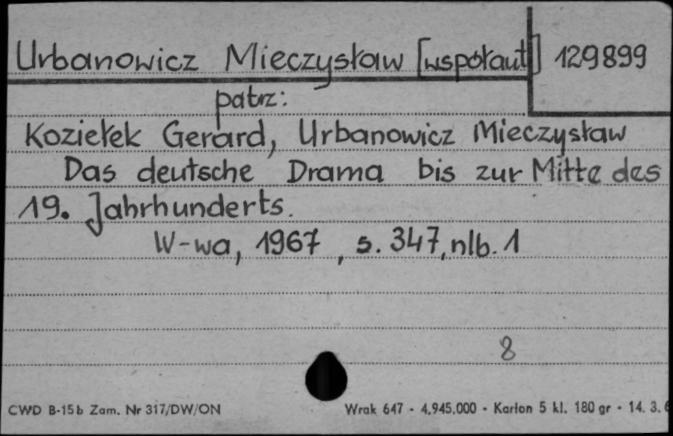 Urbanowicz Mieczysław [współaut] 129899
patrz:
Koziełek Gerard, Urbanowicz Mieczysław
Das deutsche Drama bis zur Mitte des
19. Jahrhunderts.
W-wa, 1967, s. 347, nlb. 1
8
CWD B-15b Zam. Nr 317/DW/ON Wrak 647 - 4.945.000 - Karton 5 kl. 180 gr - 14. 3. 6